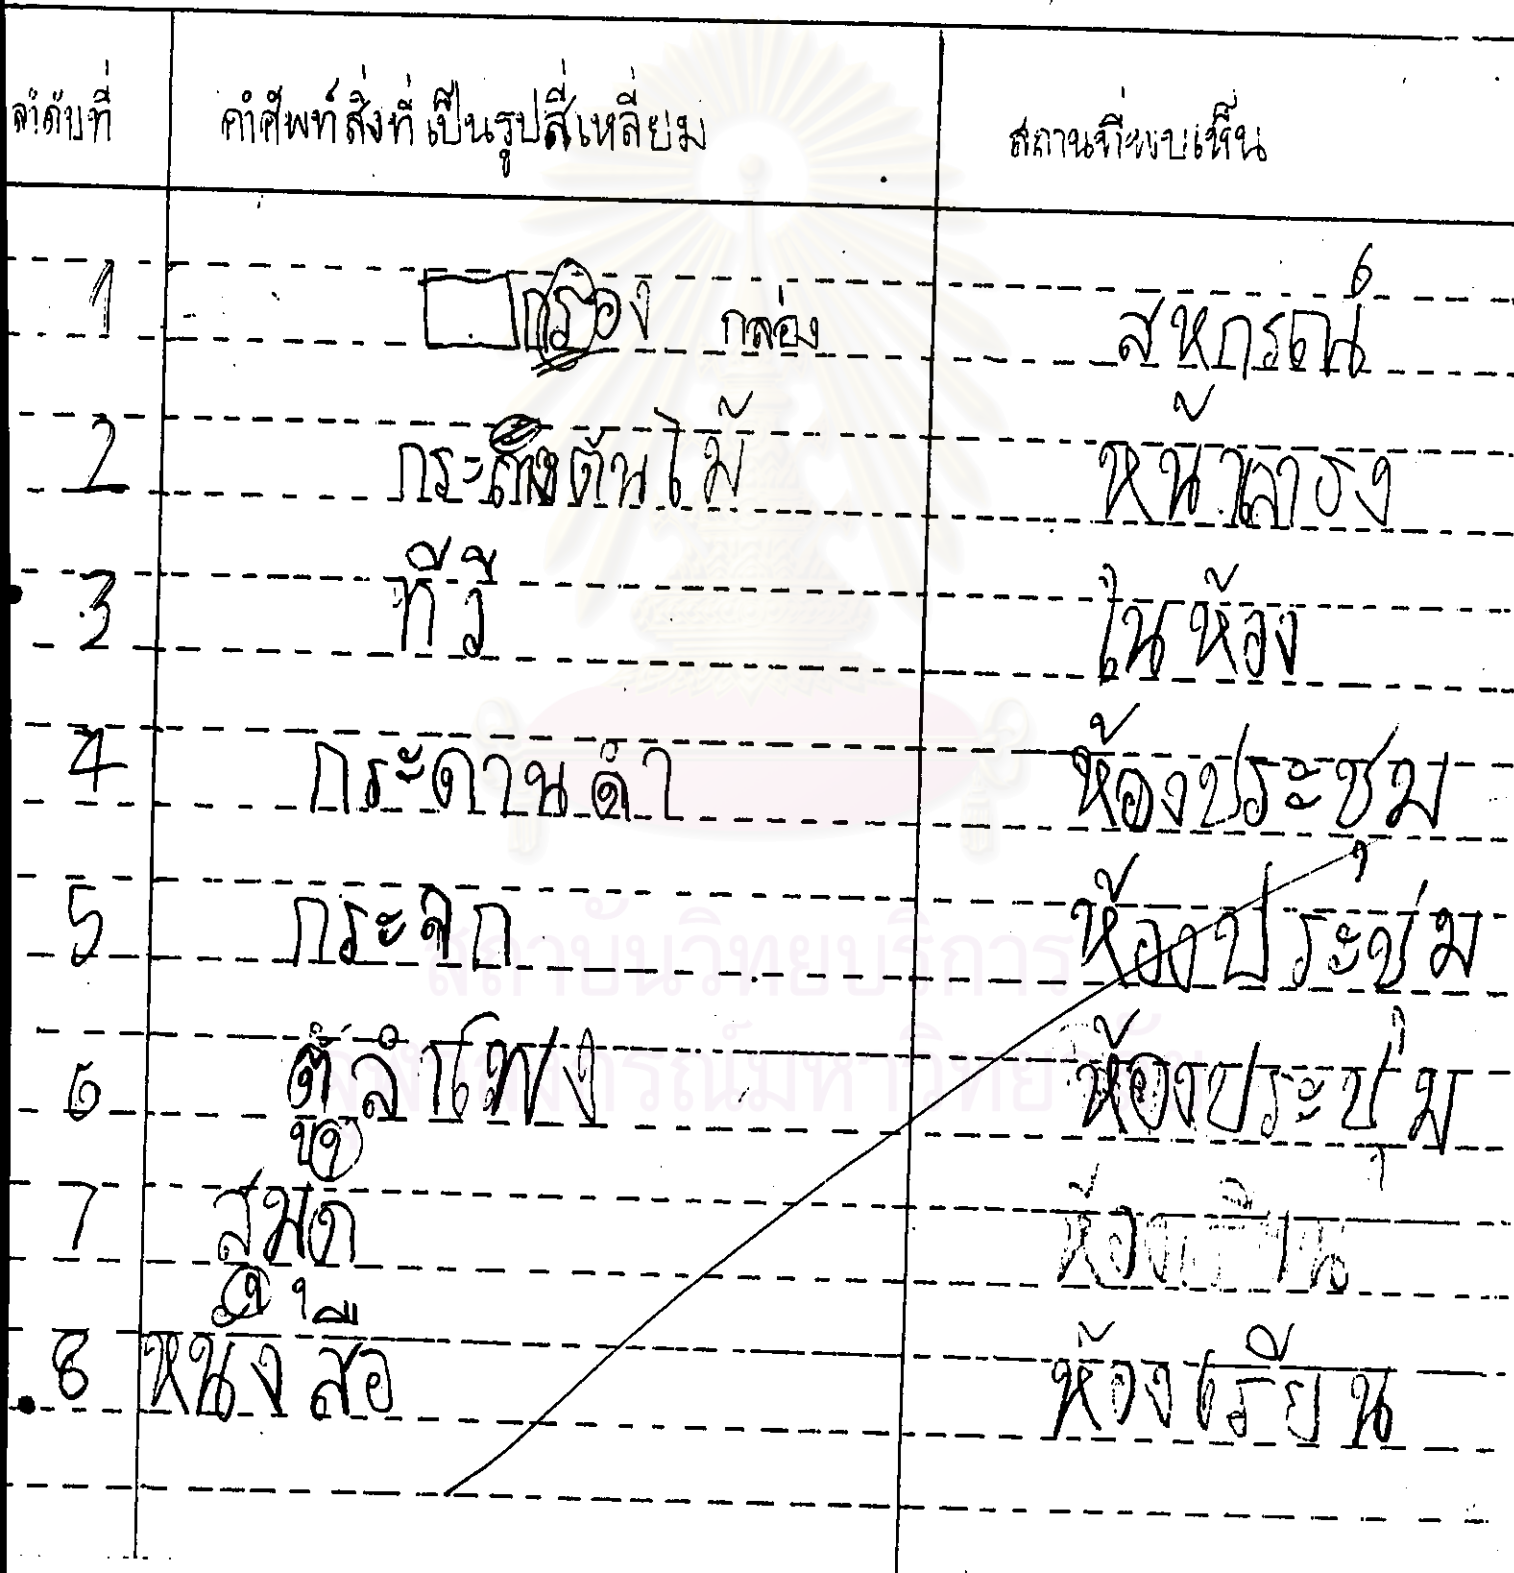 ลำดับที่ คำศัพท์สิ่งที่เป็นรูปสี่เหลี่ยม สถานที่พบเห็น
1 กรอง กล่อง สหกรณ์
2 กระถางต้นไม้ หน้าเสาธง
3 ทีวี ในห้อง
4 กระดานดำ ห้องประชุม
5 กระจก ห้องประชุ่ม
6 ตู้ลำโพง ห้องประชุ่ม
7 สมุด ห้องเรียน
8 หนังสือ ห้องเรียน
สถาบันวิทยบริการ
จุฬาลงกรณ์มหาวิทยาลัย